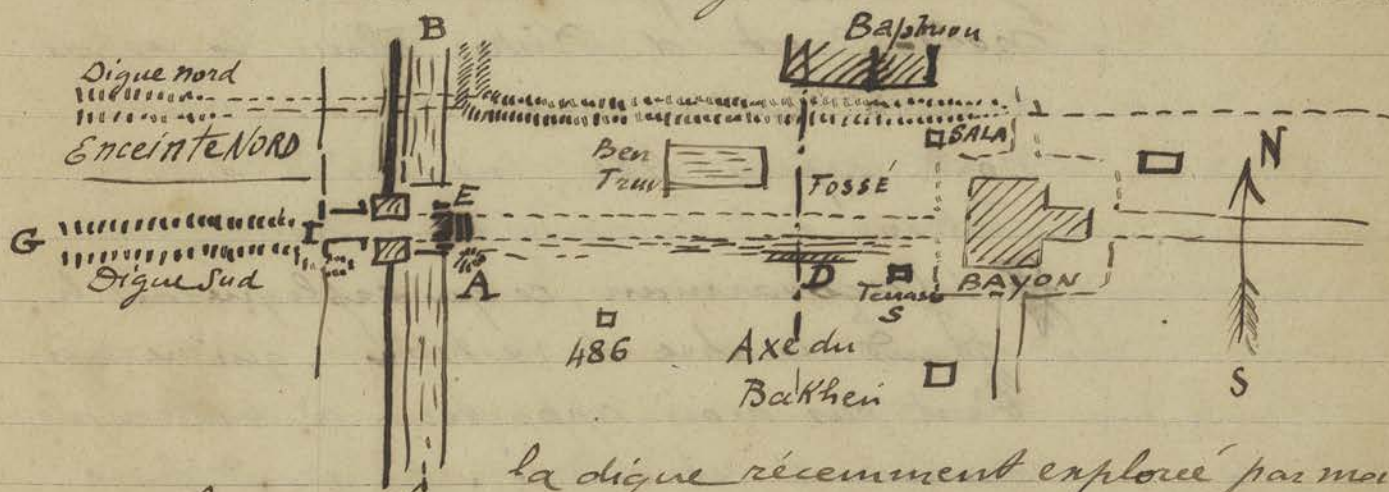 B
Baphuon
Digue nord
Enceinte NORD
SALA
N
Ben
FOSSÉ
E
G
I
Digue Sud
A
D
Terrasse
S
BAYON
486
Axe du
Bakhen
S
la digue récemment explorée par moi